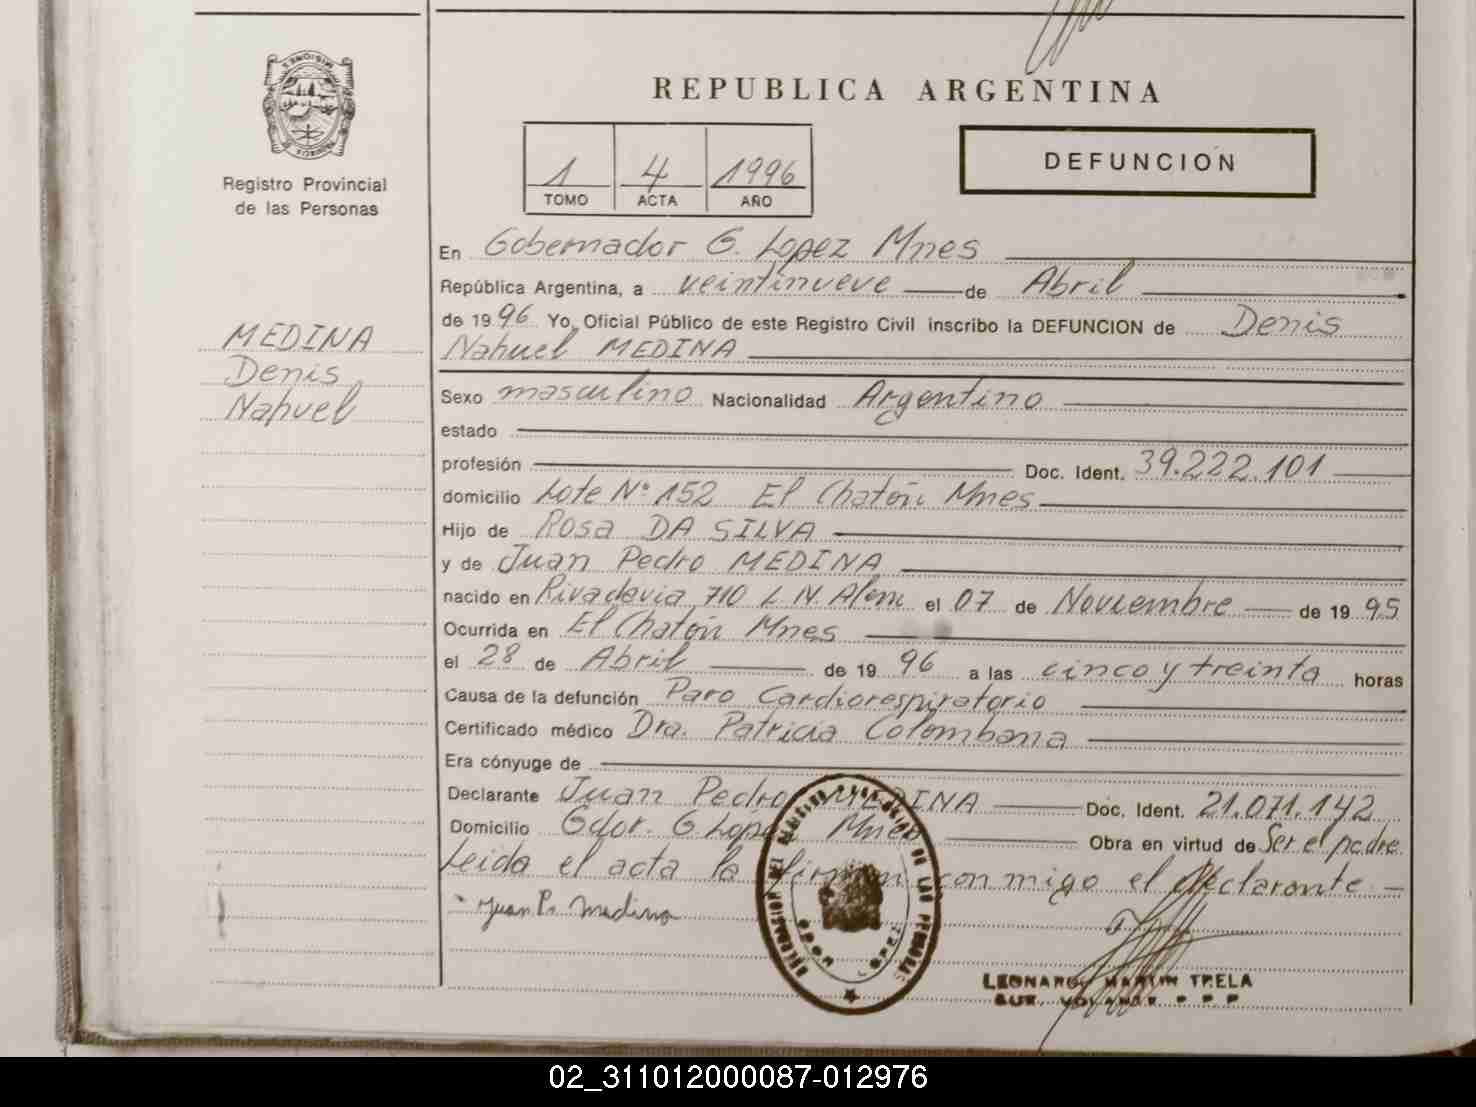 REPUBLICA ARGENTINA
MISIONES
Registro Provincial
de las Personas
1 4 1996
TOMO ACTA AÑO
DEFUNCION
MEDINA
Denis
Nahuel
En Gobernador G. Lopez Mnes
República Argentina, a veintinueve de Abril
de 1996 Yo, Oficial Público de este Registro Civil inscribo la DEFUNCION de Denis
Nahuel MEDINA
Sexo masculino Nacionalidad Argentino
estado
profesión Doc. Ident. 39.222.101
domicilio Lote Nº 152 El Chatón Mnes
Hijo de Rosa DA SILVA
y de Juan Pedro MEDINA
nacido en Rivadavia 710 L. N. Alem el 07 de Noviembre de 1995
Ocurrida en El Chatón Mnes
el 28 de Abril de 1996 a las cinco y treinta horas
Causa de la defunción Paro Cardiorespiratorio
Certificado médico Dra. Patricia Colombana
Era cónyuge de
Declarante Juan Pedro MEDINA Doc. Ident. 21.071.142
Domicilio Gdor. G López Mnes Obra en virtud de Ser el padre.
Leida el acta la firman conmigo el declarante
Juan P. Medina
DELEGACION DEL REGISTRO DE LAS PERSONAS
GDOR LOPEZ
LEONARDO MARTIN TRELA
02_311012000087-012976